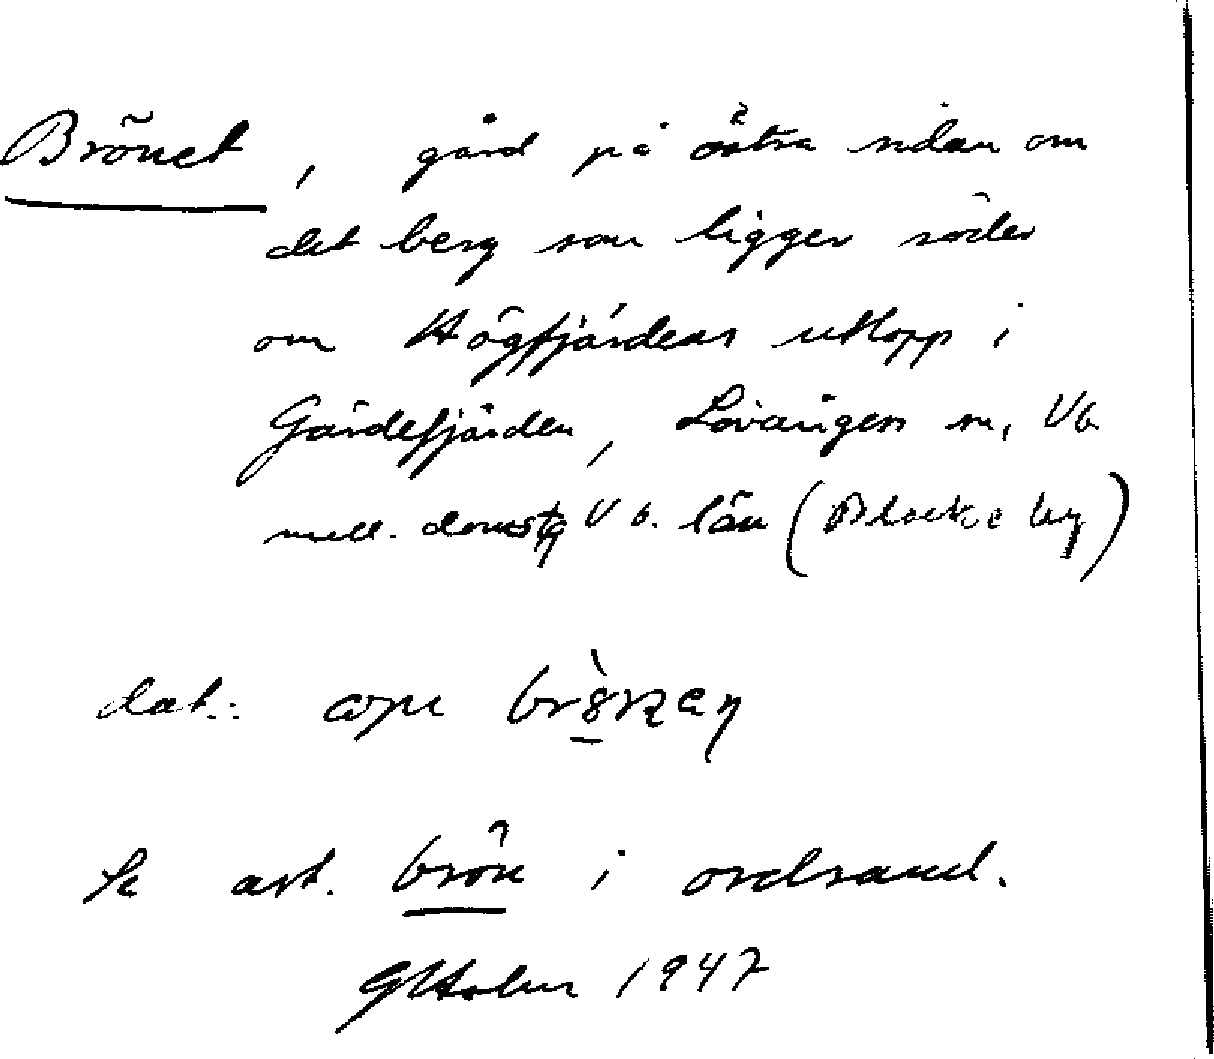 Brönet, gård på östra sidan om
det berg som ligger söder
om Högfjärdens utlopp i
Gärdefjärden, Lövångers sn, Vb
mell. domsg Vb. län (Blacke by)
dat.:
Se art. brön i ordsaml.
GHolm 1947